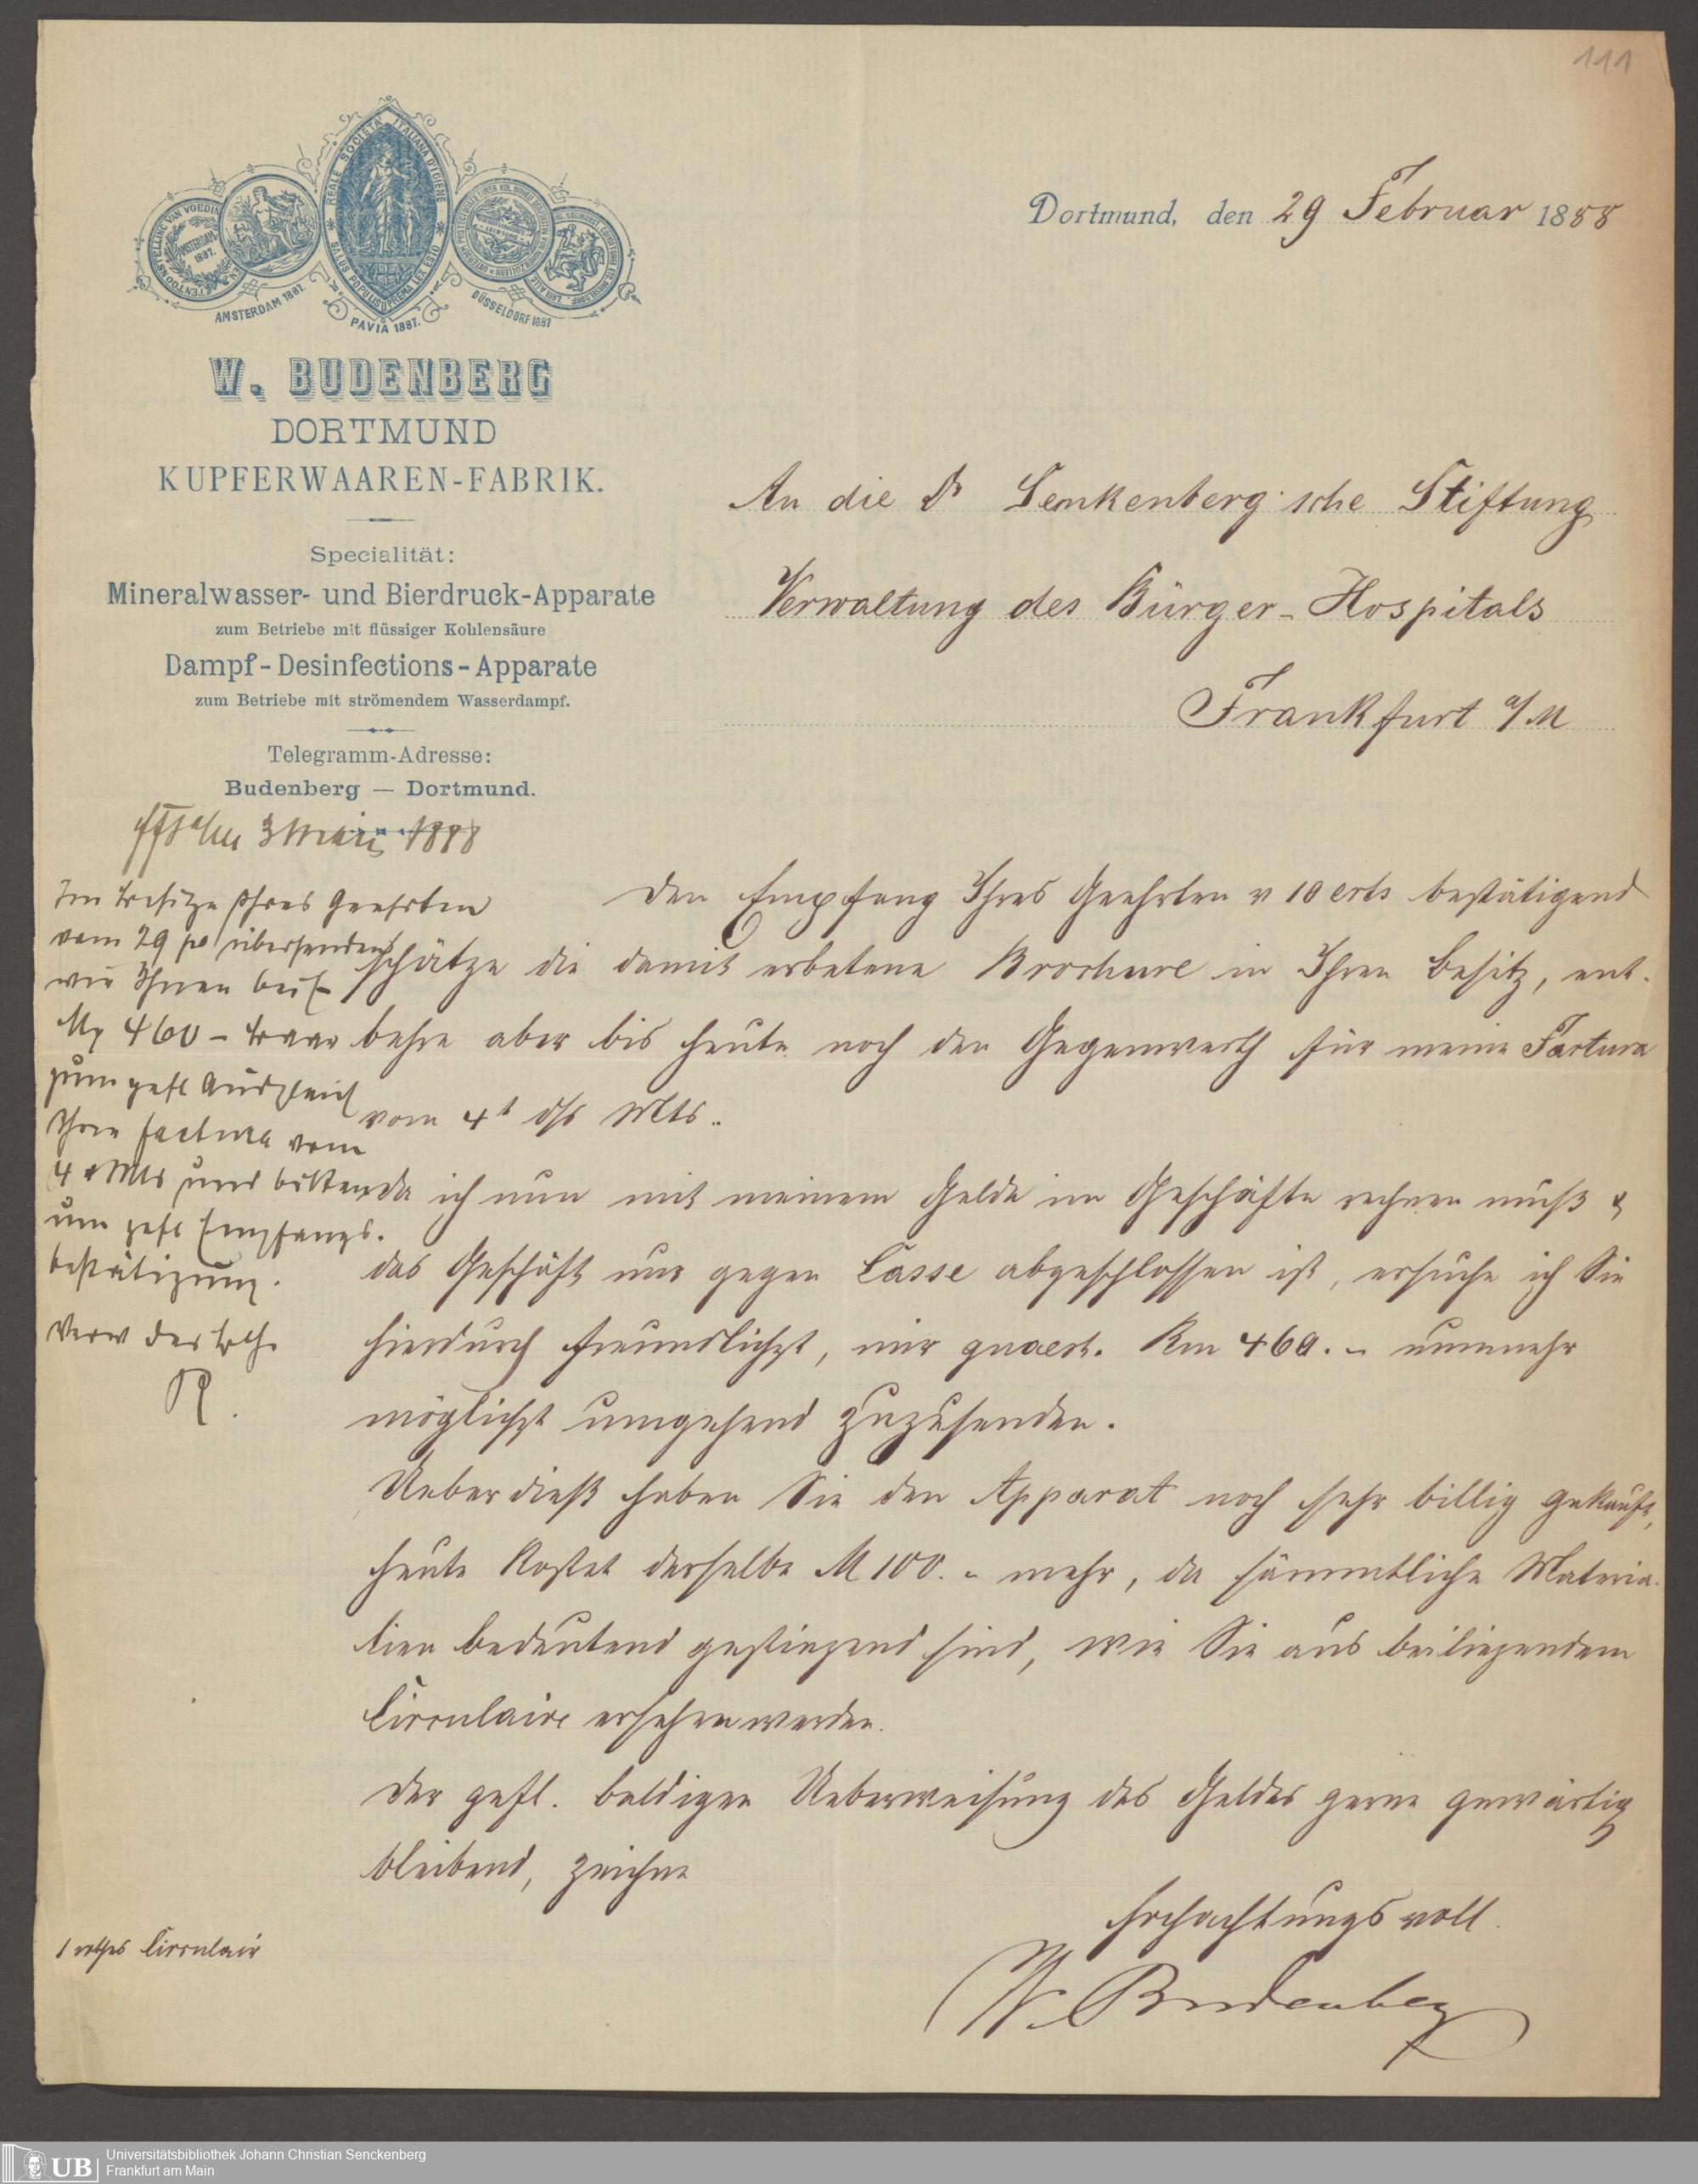 111
REALE SOCIETÀ ITALIANA D'IGIENE
SALUS POPULI SUPREMA LEX ESTO
AMSTERDAM 1887.
AMSTERDAM 1887.
PAVIA 1887.
DÜSSELDORF 1887
W. BUDENBERG
DORTMUND
KUPFERWAAREN-FABRIK.
Specialität:
Mineralwasser- und Bierdruck-Apparate
zum Betriebe mit flüssiger Kohlensäure
Dampf-Desinfections-Apparate
zum Betriebe mit strömendem Wasserdampf.
Telegramm-Adresse:
Budenberg — Dortmund.
Dortmund, den 29 Februar 1888
An die Dr Senkenberg'sche Stiftung
Verwaltung des Bürger-Hospitals
Frankfurt a/M
Den Empfang Ihres Geehrten v 10 crts bestätigend
schätze die damit erbetene Brochure in Ihren Besitz, ent-
behre aber bis heute noch den Gegenwerth für meine Factura
vom 4t ds Mts.
Da ich nun mit meinem Gelde im Geschäfte rechnen muß &
das Geschäft nur gegen Casse abgeschlossen ist, ersuche ich Sie
hierdurch freundlichst, mir quaest. Rm 460.- nunmehr
möglichst umgehend zuzusenden.
Ueberdieß haben Sie den Apparat noch sehr billig gekauft,
heute kostet derselbe M 100.- mehr, da sämmtliche Materia-
lien bedeutend gestiegend sind, wie Sie aus beiliegendem
Circulaire ersehen werden.
Der gefl. baldigen Ueberweisung des Geldes gerne gewärtig
bleibend, zeichne
Hochachtungsvoll
W. Budenberg
1 rothes Circulair
Ffst a/M 3 März 1888
Im Besitze Ihres Geehrten
vom 29 po übersenden
wir Ihnen beif.
M 460 - baar
zum gefl Ausgleich
Ihrer Factura vom
4 Mts und bitten
um gefl Empfangs-
bestätigung.
Verw des
R.
UB
Universitätsbibliothek Johann Christian Senckenberg
Frankfurt am Main